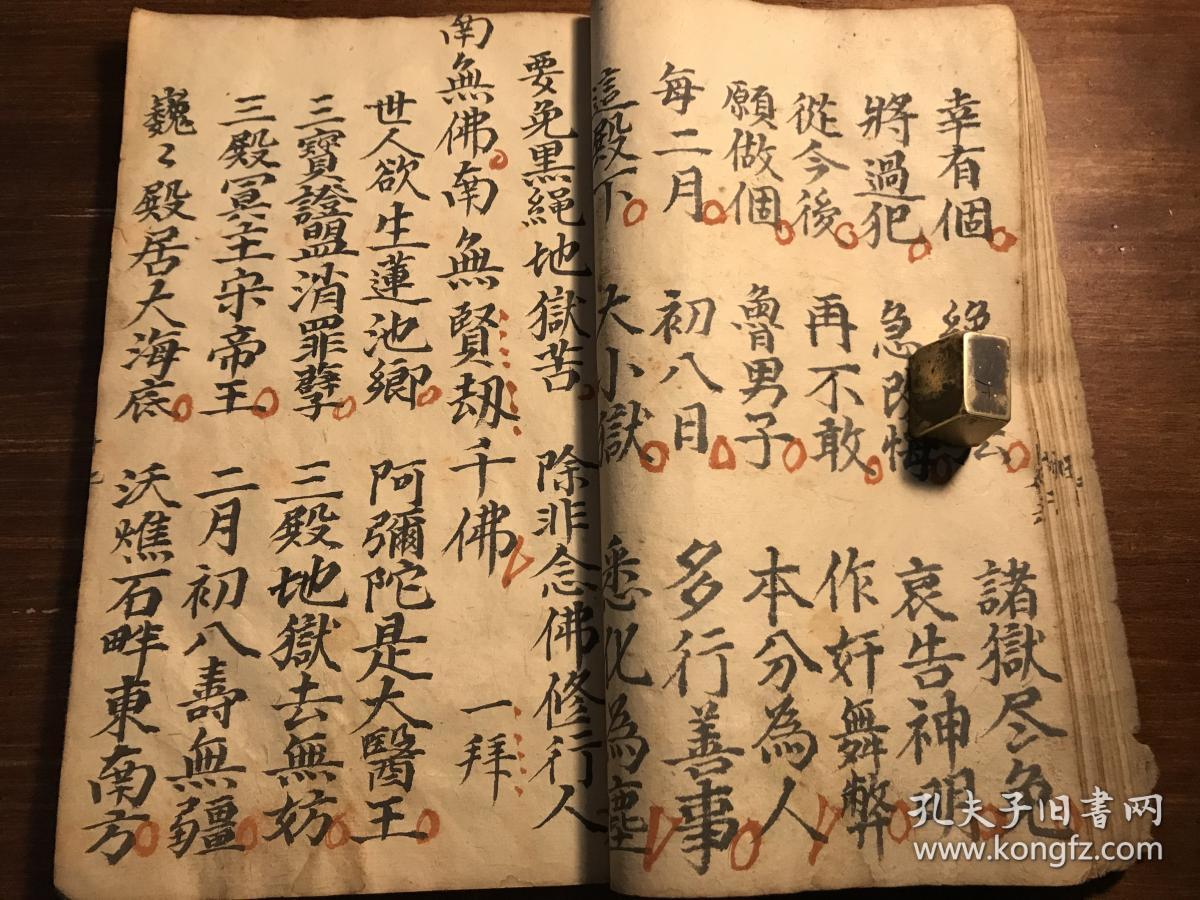 幸有個 諸獄尽免
將過犯 急改悔 哀告神明
從今後 再不敢 作奸舞弊
願做個 魯男子 本分為人
每二月 初八日 多行善事
這殿下 大小獄 悉化為塵
要免黑繩地獄苦 除非念佛修行人
南無佛南無賢劫千佛 一拜
世人欲生蓮池鄉 阿彌陀是大醫王
三寶證盟消罪孽 三殿地獄去無妨
三殿冥主宋帝王 二月初八壽無疆
巍〻殿居大海底 沃燋石畔東南方
孔夫子旧書网
www.kongfz.com